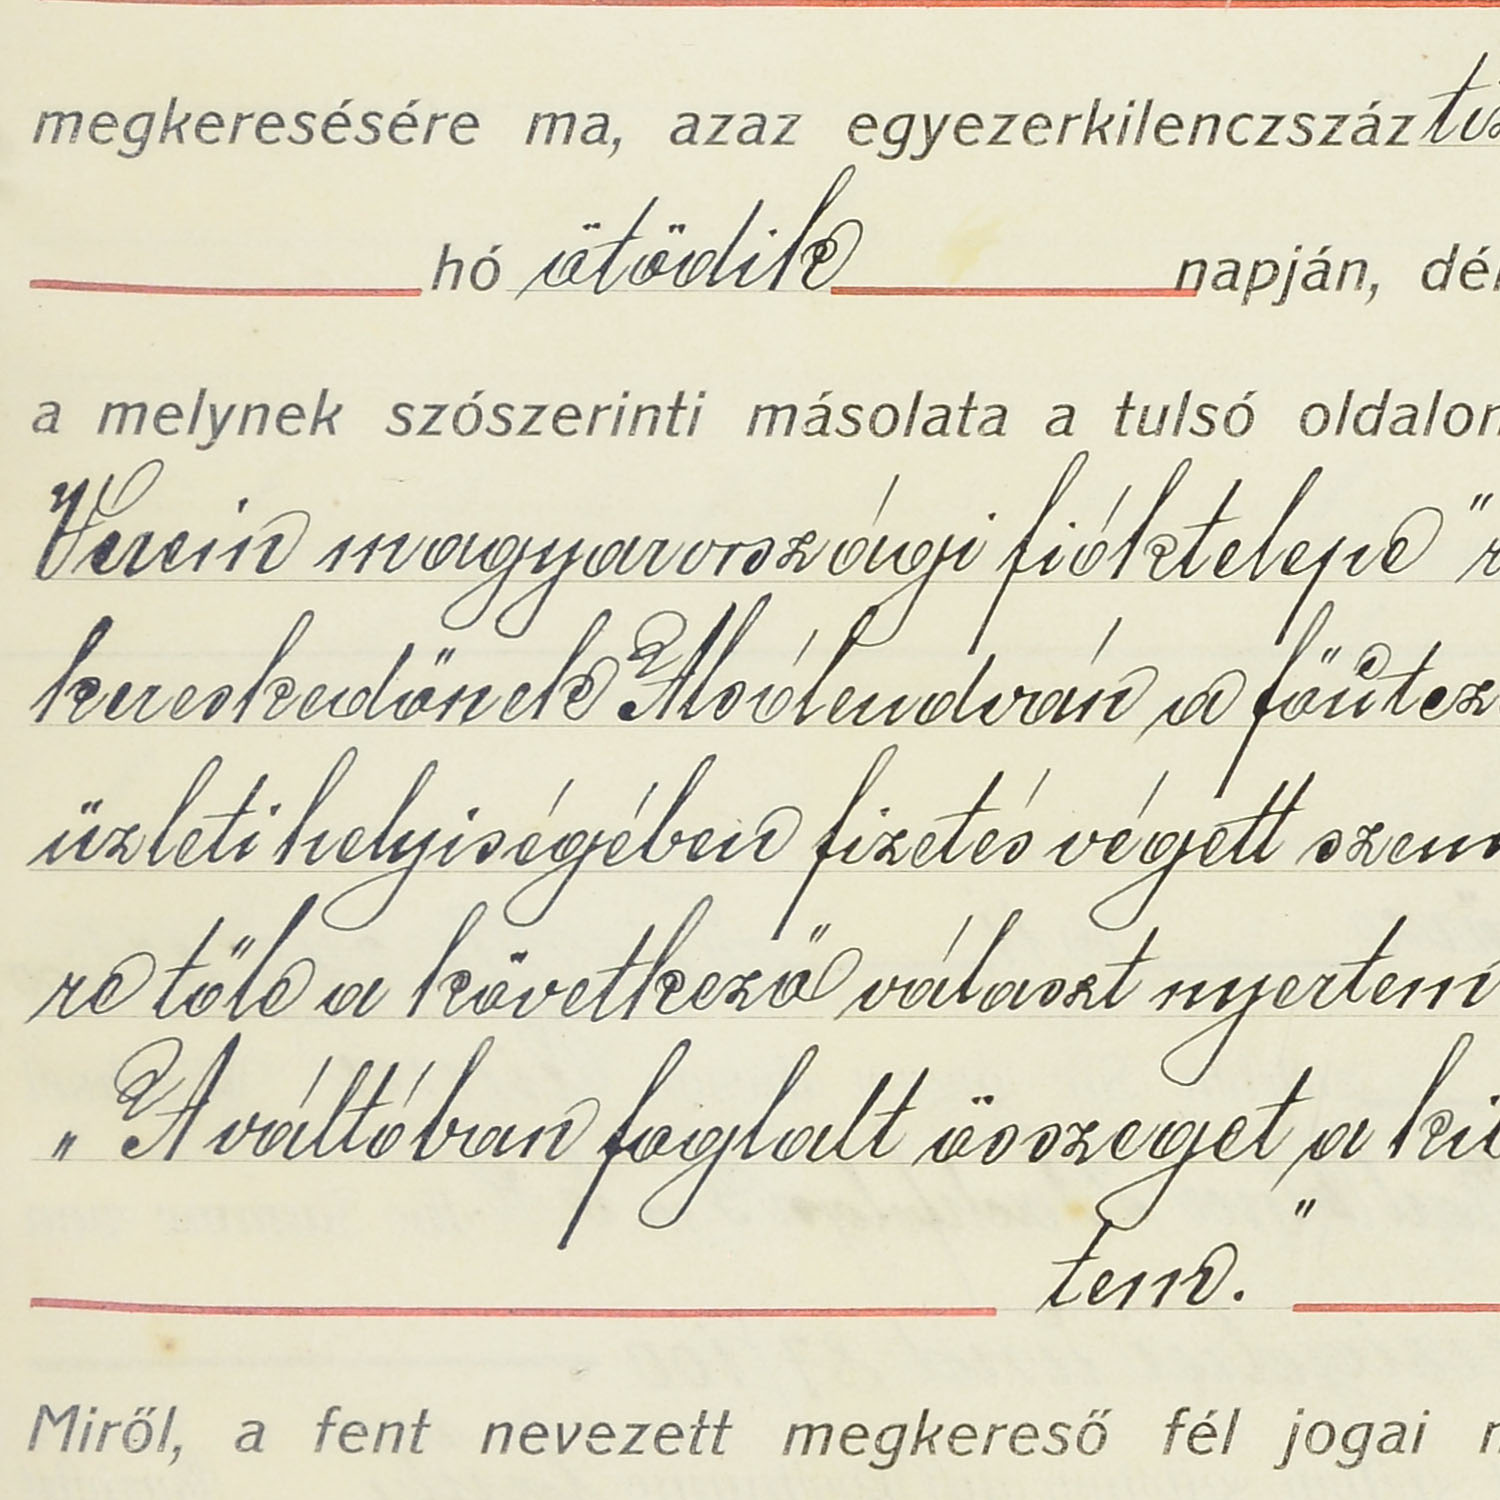 megkeresésére ma, azaz egyezerkilenczszáz
hó ötödik napján, dél
a melynek szószerinti másolata a tulsó oldalon
Verein magyarországi fióktelepe"
kereskedőnek Alsólendván a főút
üzleti helyiségében fizetés végett szem
re tőle a következő választ nyertem
„A váltóban foglalt összeget a ki
tem."
Miről, a fent nevezett megkereső fél jogai